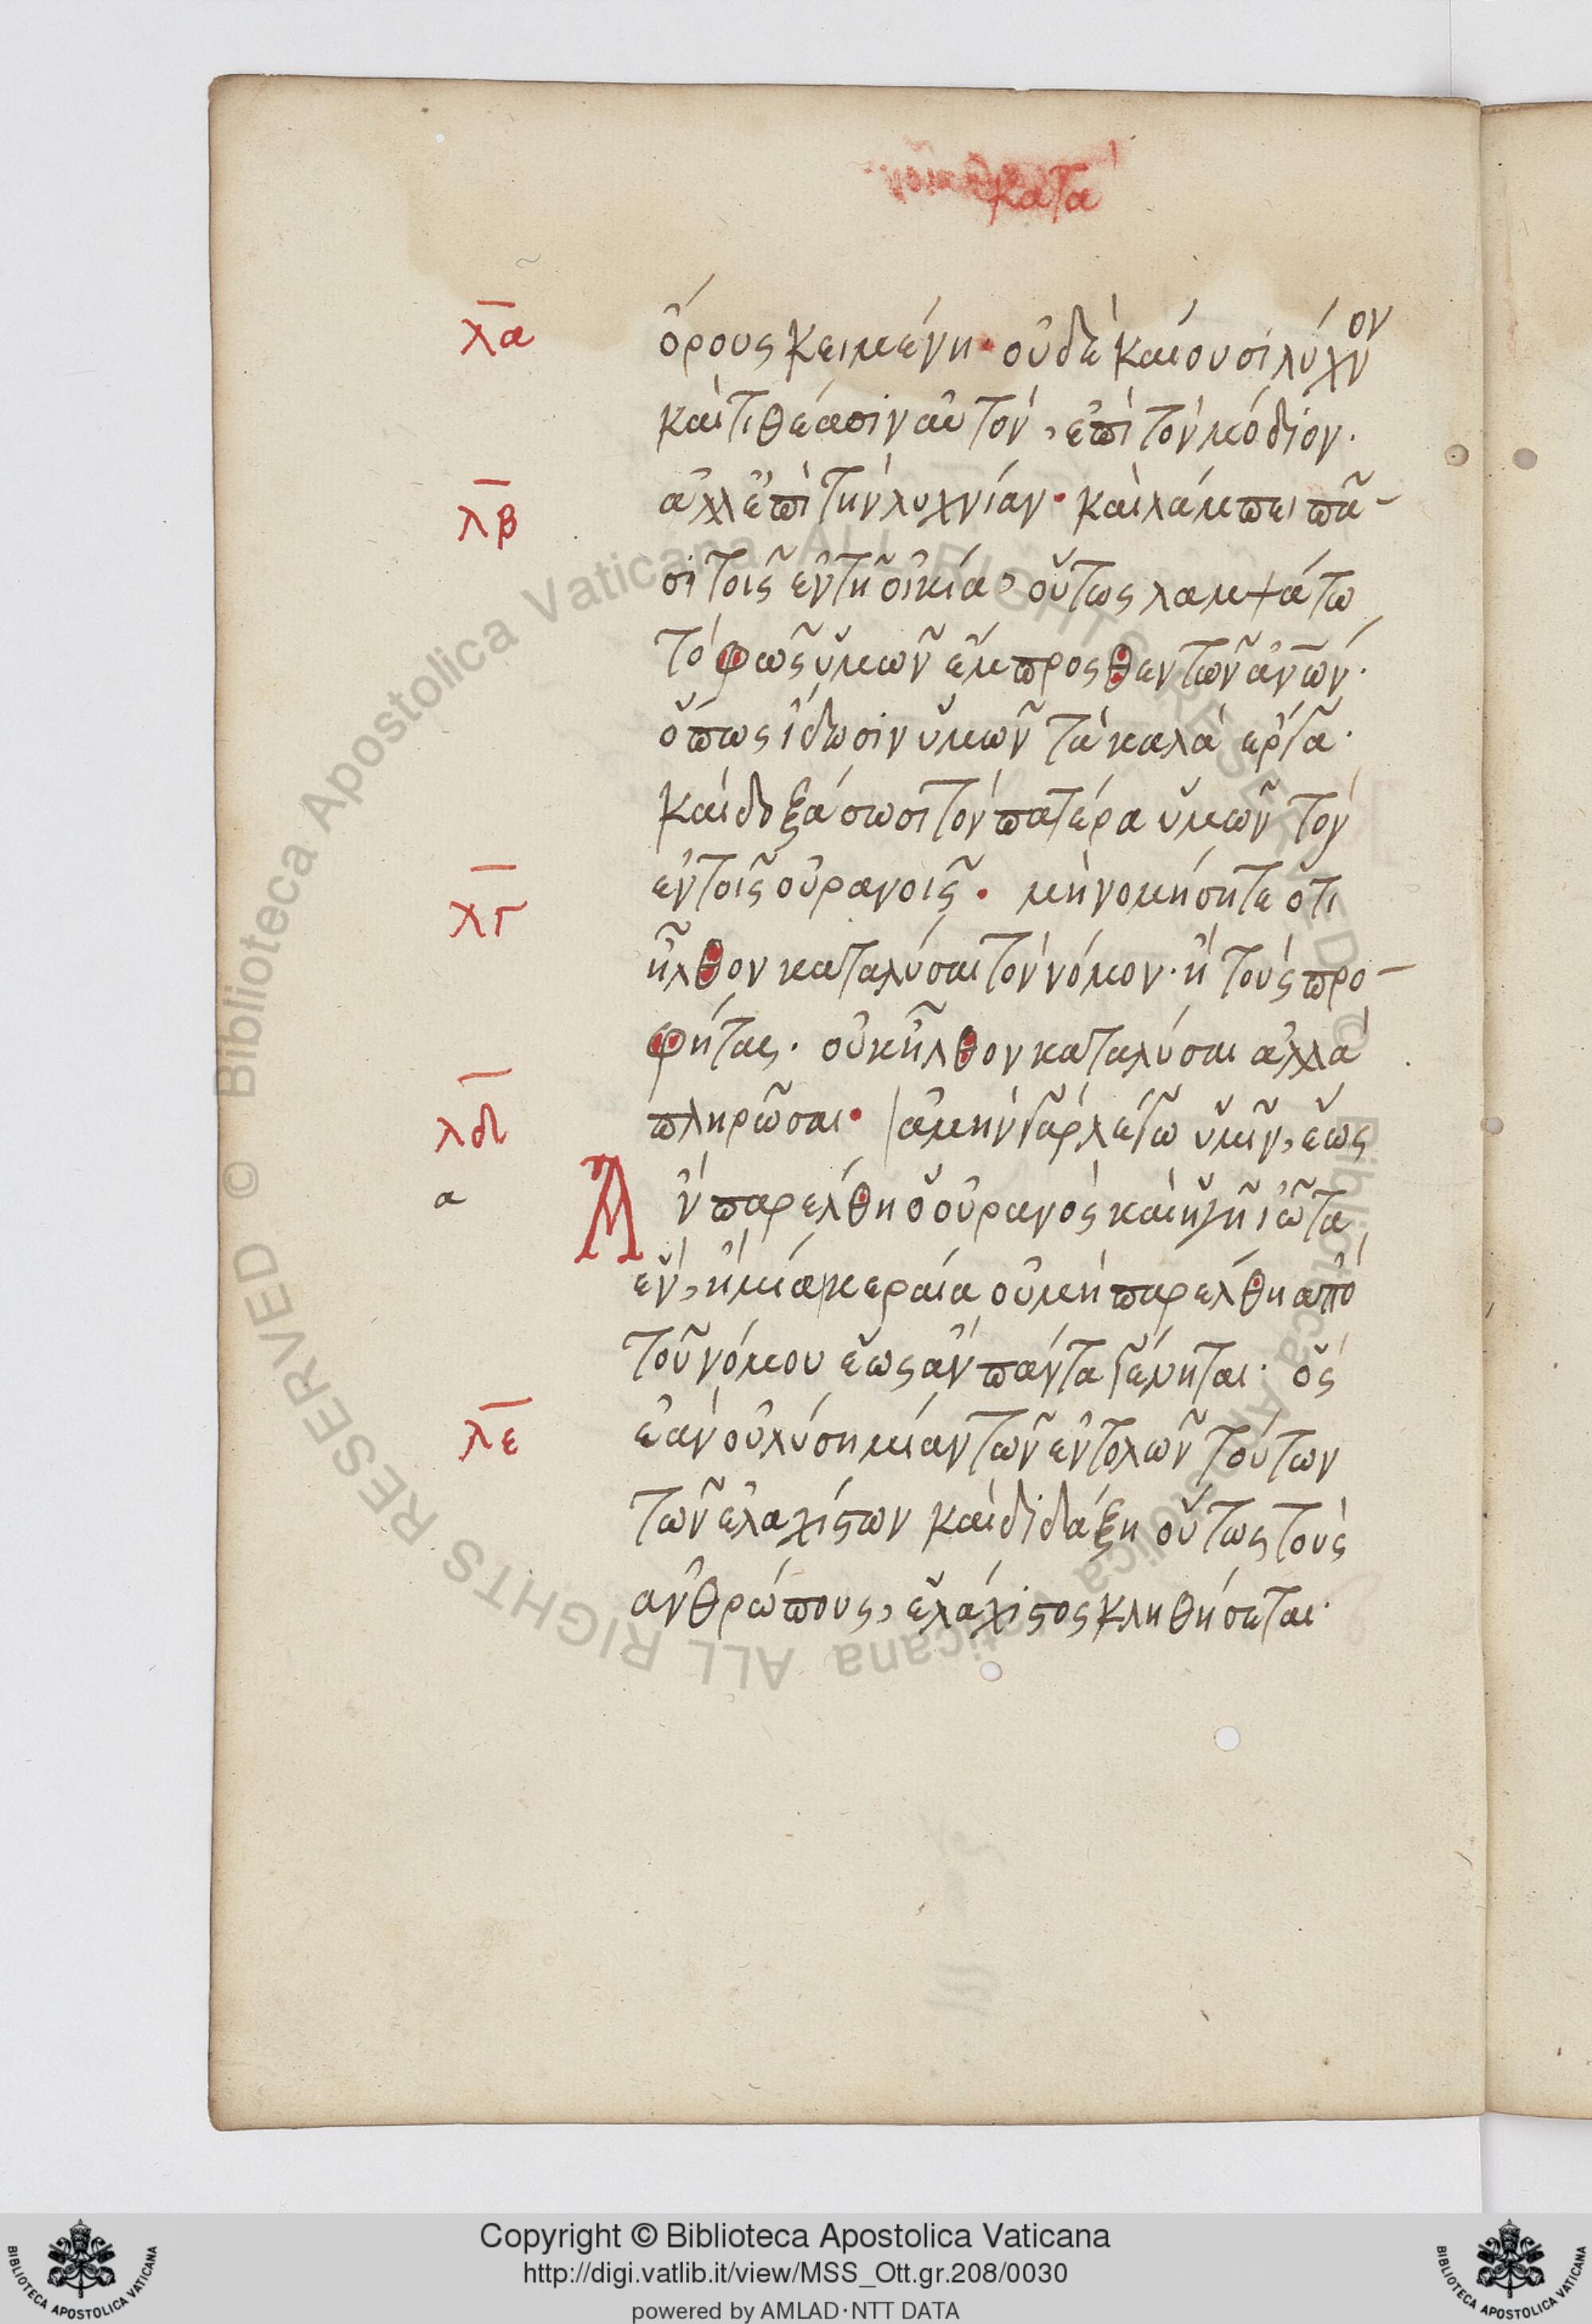 κατὰ
λα ὄρους κειμένη· οὐδὲ καίουσι λύχνον
καὶ τιθέασιν αὐτὸν, ἐπὶ τὸν μόδιον·
λβ ἀλλ ἐπὶ τὴν λυχνίαν· καὶ λάμπει πᾶ-
σι τοῖς ἐν τῆ οἰκία, οὕτως λαμψάτω
τὸ φῶς ὑμῶν ἔμπροσθεν τῶν ἀνῶν·
ὅπως ἴδωσιν ὑμῶν τὰ καλὰ ἔργα·
καὶ δοξάσωσι τὸν πατέρα ὑμῶν τὸν
λγ ἐν τοῖς οὐρανοῖς· μὴ νομήσητε ὅτι
ἦλθον καταλύσαι τὸν νόμον· ἢ τοὺς προ-
φήτας· οὐκ ἦλθον καταλύσαι ἀλλὰ
λδ πληρῶσαι· ἀμὴν γὰρ λέγω ὑμῖν, ἕως
α Ἂν παρέλθη ὁ οὐρανὸς καὶ ἡ γῆ ἰῶτα
ἓν, ἢ μία κεραία οὐ μὴ παρέλθη ἀπὸ
τοῦ νόμου ἕως ἂν πάντα γένηται· ὃς
λε ἐὰν οὖ λύση μίαν τῶν ἐντολῶν τούτων
τῶν ἐλαχίστων καὶ διδάξη οὕτως τοὺς
ἀνθρώπους, ἐλάχιστος κληθήσεται·
© Biblioteca Apostolica Vaticana ALL RIGHTS RESERVED
© Biblioteca Apostolica Vaticana ALL RIGHTS RESERVED
Copyright © Biblioteca Apostolica Vaticana
http://digi.vatlib.it/view/MSS_Ott.gr.208/0030
powered by AMLAD·NTT DATA
BIBLIOTECA APOSTOLICA VATICANA
BIBLIOTECA APOSTOLICA VATICANA